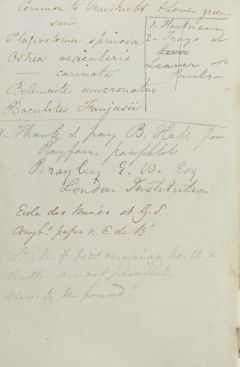 Common to Maestricht & lower green
sand.
Plagiostoma spinosa
Ostrea vesicularis
— carinata
Belemnites mucronatus
Baculites Faujasii
1. Hoffmann
2. Trays at
Leaver at
Thank & pay B. Hall for
Playfairs pamphlet
Brayley E. W. Esq
London Institution
Ecole des Mines at G.S.
paper E. de Bt.
of beds running north &
are not parallel
where to be found?